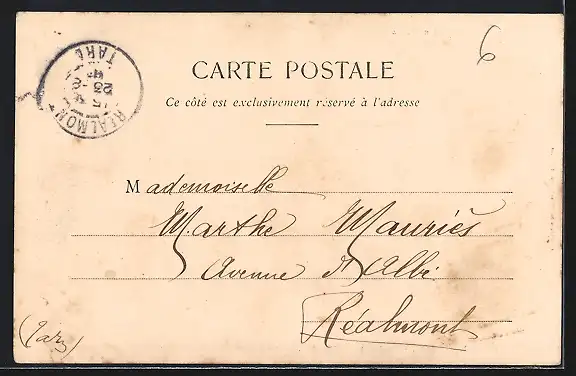 6
REALMONT
TARN
15
23 -8
CARTE POSTALE
Ce côté est exclusivement réservé à l'adresse
Mademoiselle
Marthe Mauriès
Avenue d'Albi
Réalmont
(Tarn)